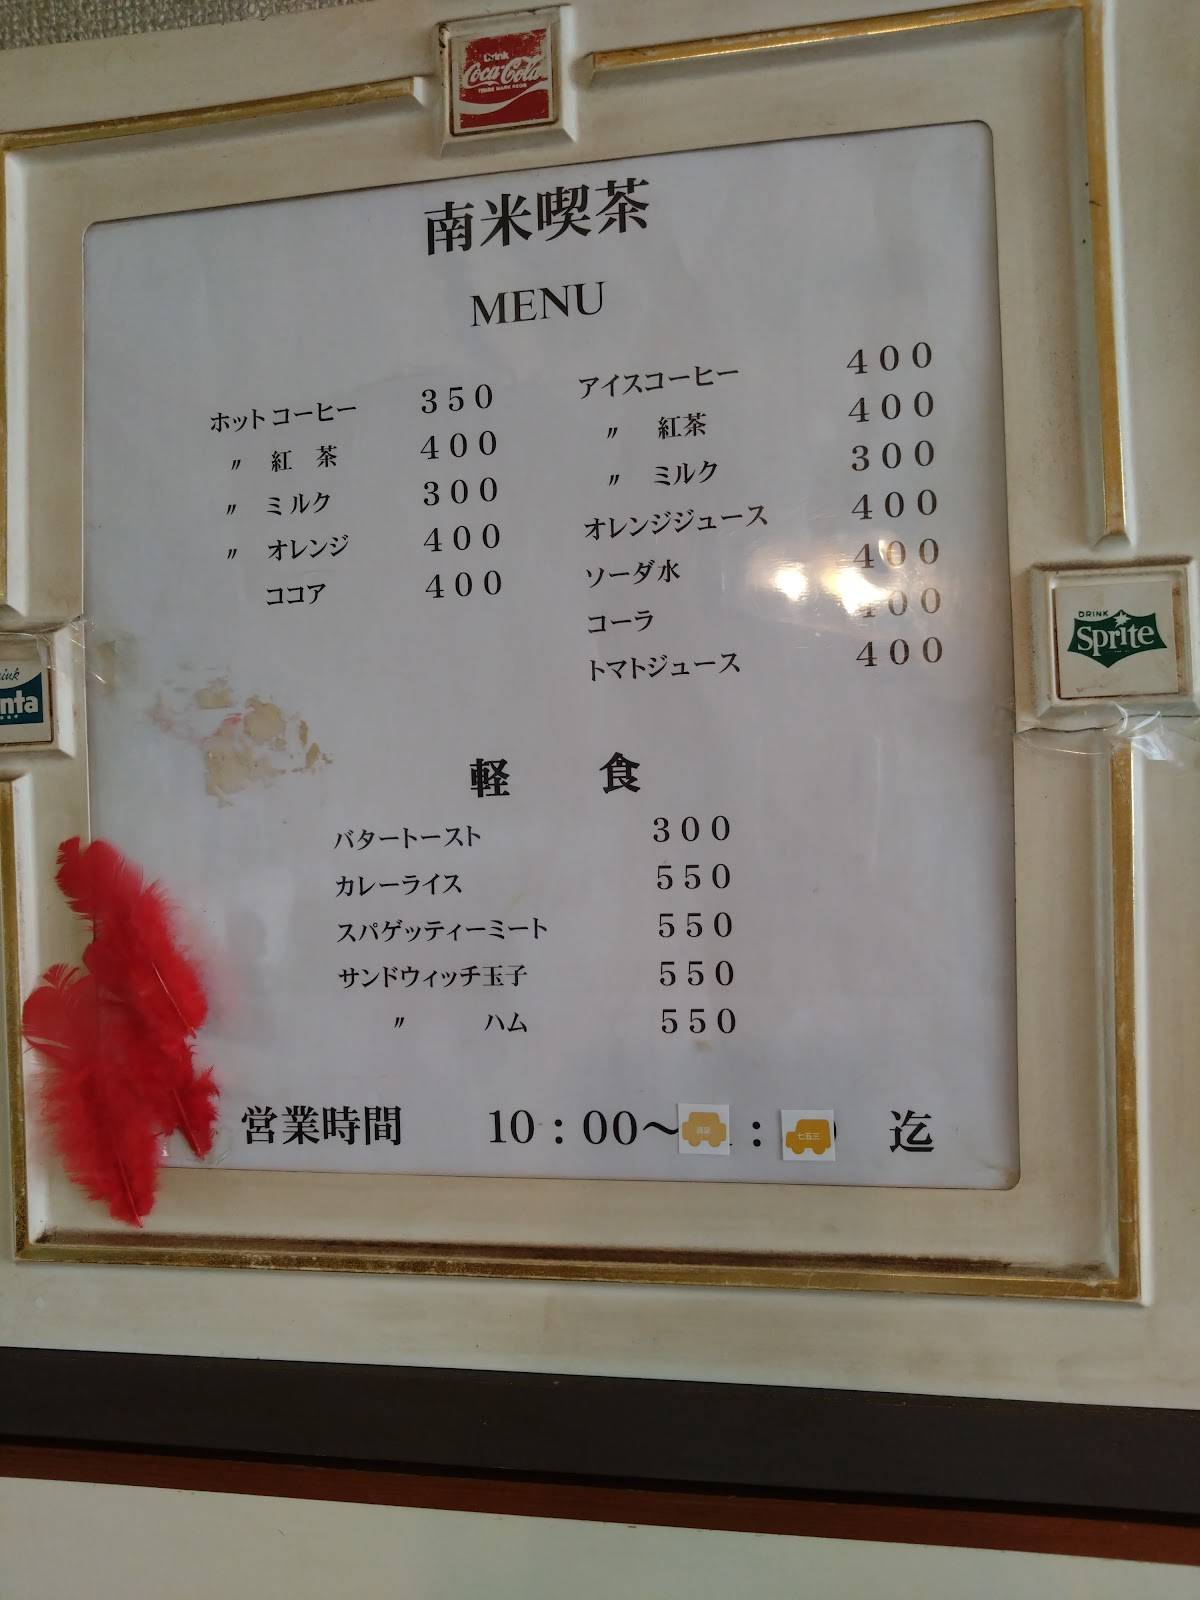 Drink
Coca-Cola
TRADE MARK REG®
南米喫茶
MENU
ホットコーヒー 350
〃 紅 茶 400
〃 ミルク 300
〃 オレンジ 400
ココア 400
アイスコーヒー 400
〃 紅茶 400
〃 ミルク 300
オレンジジュース 400
ソーダ水 400
コーラ 400
トマトジュース 400
DRINK
Sprite
軽 食
バタートースト 300
カレーライス 550
スパゲッティーミート 550
サンドウィッチ玉子 550
〃 ハム 550
営業時間 10:00〜 : 迄
七五三